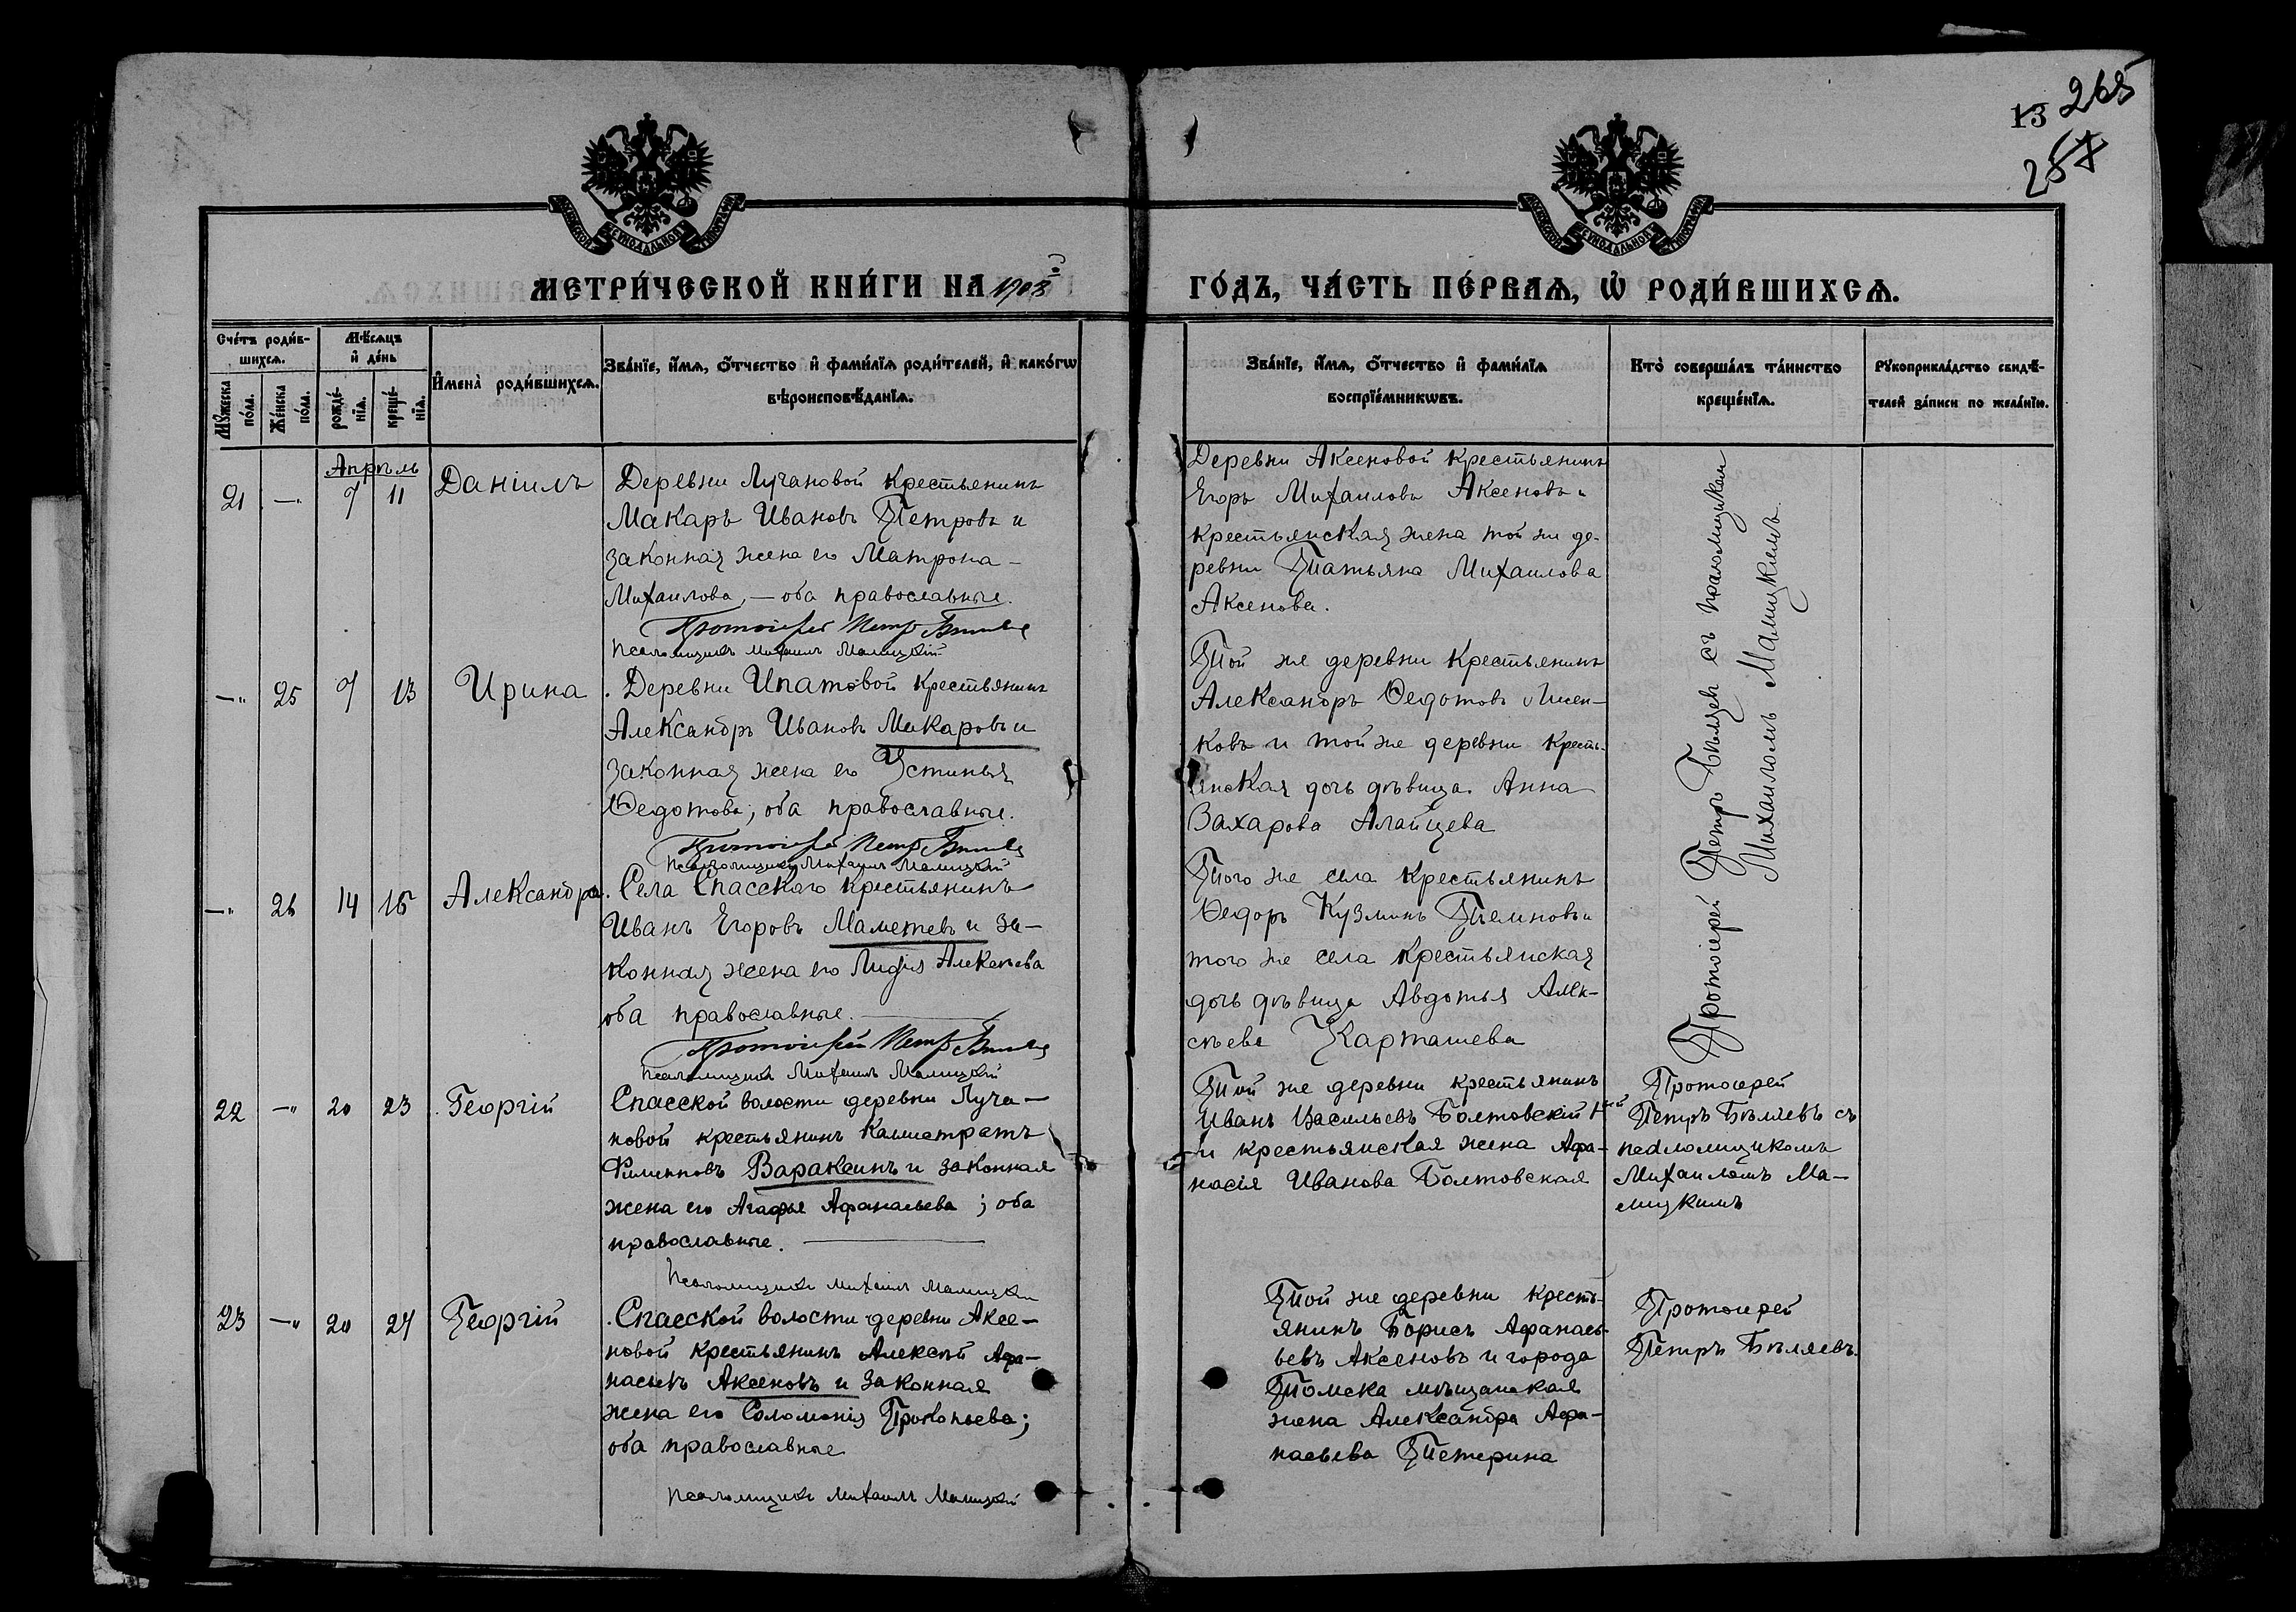 13 265
257
МОСКОВСКОЙ СѴНОДАЛЬНОЙ ТИПОГРАФІИ
МОСКОВСКОЙ СѴНОДАЛЬНОЙ ТИПОГРАФІИ
МЕТРИ́ЧЕСКОЙ КНИ́ГИ НА 1903
ГО́ДЪ, ЧА́СТЬ ПЕ́РВАѦ, Ѡ҆ РОДИ́ВШИХСѦ.
Сче́тъ роди́в-
шихсѧ.
Мꙋ́жеска по́ла.
Же́нска по́ла.
Мѣ́сѧцъ
и҆ де́нь
рожде́-
нїѧ.
креще́-
нїѧ.
И҆мена̀ роди́вшихсѧ.
Зва́нїе, и҆́мѧ, ѻ҆́тчество и҆ фами́лїѧ роди́телей, и҆ како́гѡ
вѣроисповѣ́данїѧ.
Зва́нїе, и҆́мѧ, ѻ҆́тчество и҆ фами́лїѧ
воспрїе́мникѡвъ.
Кто̀ соверша́лъ та́инство
креще́нїѧ.
Рꙋкоприкла́дство свидѣ́-
телей за́писи по жела́нїю.
Апрѣль
21 —„ 7 11 Даніилъ
Деревни Лучановой крестьянинъ
Макаръ Ивановъ Петровъ и
законная жена его Матрона
Михаилова, — оба православные.
Протоіерей Петръ Бѣляевъ
Псаломщикъ Михаилъ Малицкій
Деревни Аксеновой крестьянинъ
Егоръ Михаиловъ Аксеновъ и
крестьянская жена той же де-
ревни Татьяна Михаилова
Аксенова.
Протоіерей Петръ Бѣляевъ съ псаломщикомъ
Михаиломъ Малицкимъ.
—„ 25 7 13 Ирина
Деревни Ипатовой крестьянинъ
Александръ Ивановъ Макаровъ и
законная жена его Устинья
Ѳедотова; оба православные.
Протоіерей Петръ Бѣляевъ
Псаломщикъ Михаилъ Малицкій
Той же деревни крестьянинъ
Александръ Ѳедотовъ Лисен-
ковъ и той же деревни кресть-
янская дочь дѣвица Анна
Захарова Алайцева
—„ 26 14 16 Александра
Села Спасскаго крестьянинъ
Иванъ Егоровъ Маметевъ и за-
конная жена его Лидія Алексѣева
оба православные.
Протоіерей Петръ Бѣляевъ
Псаломщикъ Михаилъ Малицкій
Того же села крестьянинъ
Ѳедоръ Кузминъ Темновъ и
того же села крестьянская
дочь дѣвица Авдотья Алек-
сѣева Карташева
22 —„ 20 23 Георгій
Спасской волости деревни Луча-
новой крестьянинъ Калистратъ
Филипповъ Вараксинъ и законная
жена его Агафья Афанасьева; оба
православные.
Псаломщикъ Михаилъ Малицкій
Той же деревни крестьянинъ
Иванъ Васильевъ Болтовскій
и крестьянская жена Афа-
насія Иванова Болтовская
Протоіерей
Петръ Бѣляевъ съ
псаломщикомъ
Михаиломъ Ма-
лицкимъ
23 —„ 20 27 Георгій
Спасской волости деревни Аксе-
новой крестьянинъ Алексѣй Афа-
насьевъ Аксеновъ и законная
жена его Соломонія Прокопьева;
оба православные
Псаломщикъ Михаилъ Малицкій
Той же деревни кресть-
янинъ Борисъ Афанась-
евъ Аксеновъ и города
Томска мѣщанская
жена Александра Афа-
насьева Тетерина
Протоіерей
Петръ Бѣляевъ.